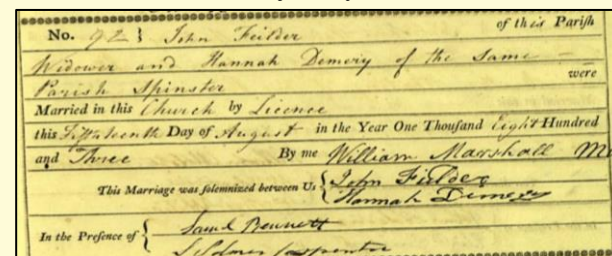 No. 92 } John Feilder of this Parish
Widower and Hannah Demery of the Same
Parish Spinster were
Married in this Church by Licence
this Fifteenth Day of August in the Year One Thousand Eight Hundred
and Three By me William Marshall
This Marriage was solemnized between Us { John Feilder
Hannah Demery
In the Presence of { Saml Bennett
Carpenter